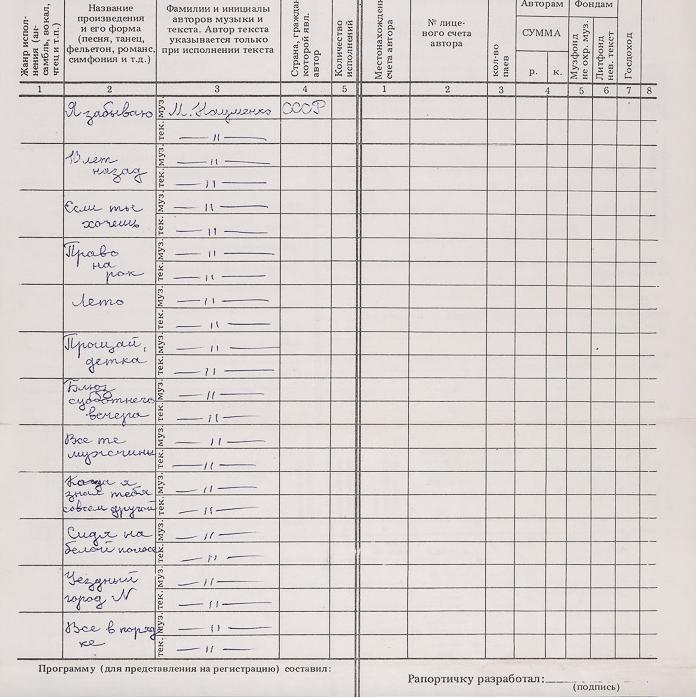 Жанр испол-
нения (ан-
самбль, вокал,
чтец и т.п.)
Название
произведения
и его форма
(песня, танец,
фельетон, романс,
симфония и т.д.)
Фамилии и инициалы
авторов музыки и
текста. Автор текста
указывается только
при исполнении текста
Страна, граждан
которой явл.
автор
Количество
исполнений
Местонахожден
счета автора
№ лице-
вого счета
автора
кол-во
паев
Авторам
СУММА
р. к.
Фондам
Музфонд
не охр. муз.
Литфонд
нев. текст
Госдоход
1 2 3 4 5 1 2 3 4 5 6 7 8
Я забываю муз. М. Науменко СССР
тек. — " —
15 лет муз. — " —
назад тек. — " —
Если ты муз. — " —
хочешь тек. — " —
Право муз. — " —
на
рок тек. — " —
Лето муз. — " —
тек. — " —
Прощай, муз. — " —
детка тек. — " —
Блюз муз. — " —
субботнего
вечера тек. — " —
Все те муз. — " —
мужчины тек. — " —
Когда я муз. — " —
знал тебя
совсем другой тек. — " —
Сидя на муз. — " —
белой полосе тек. — " —
Уездный муз. — " —
город N тек. — " —
Все в поряд муз. — " —
ке тек. — " —
Программу (для представления на регистрацию) составил:
Рапортичку разработал:
(подпись)